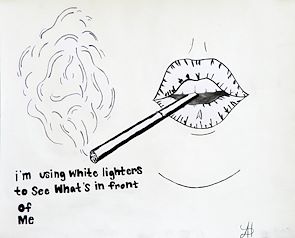 i'm using white lighters
to See What's in front
of
Me